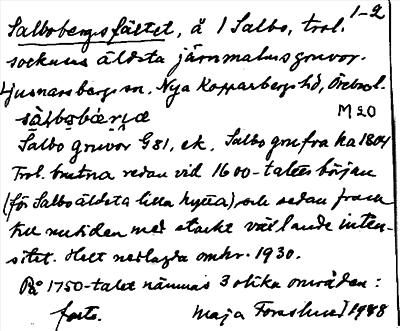 1-2
Salbobergsfältet, å 1 Salbo, trol.
socknens äldsta järnmalmsgruvor.
Ljusnarsbergs sn. Nya Kopparbergs hd, Örebro l.
M 20
Salbo gruvor G81, ek. Salbo grufva ka 1804
Trol. brutna redan vid 1600-talets början
(för Salbo äldsta lilla hytta), och sedan fram
till nutiden med starkt växlande inten-
sitet. Helt nedlagda omkr. 1930.
På 1750-talet nämnas 3 olika områden:
forts. Maja Forslund 1988